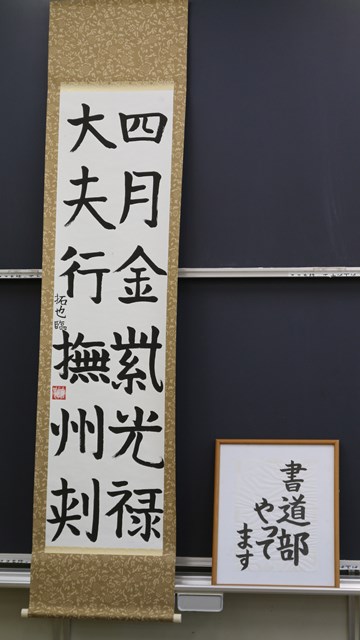 四月金紫光禄
大夫行撫州刺
拓也臨
書道部
やって
ます